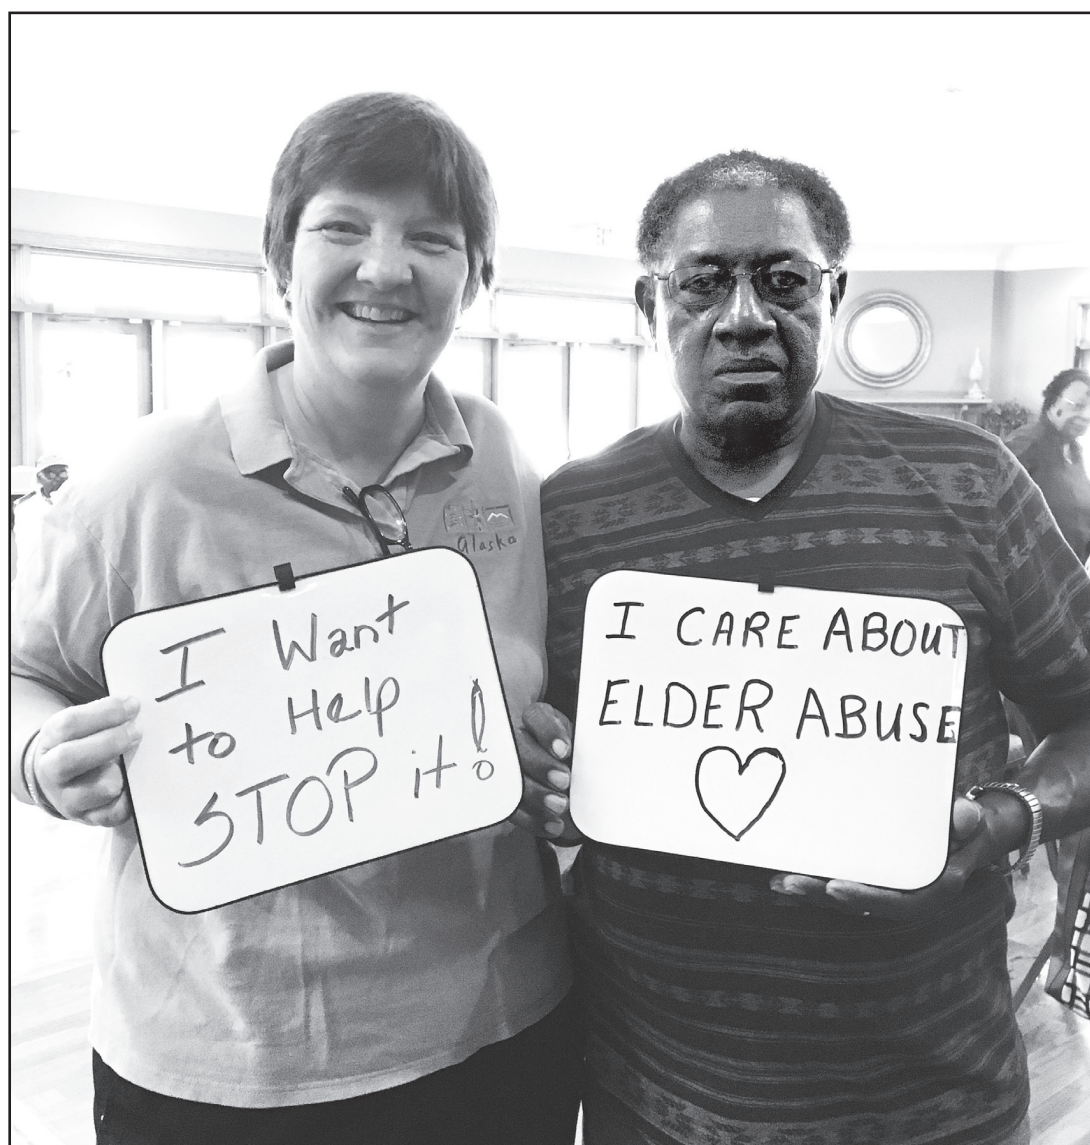 Alaska
I Want
to Help
STOP it!
I CARE ABOUT
ELDER ABUSE